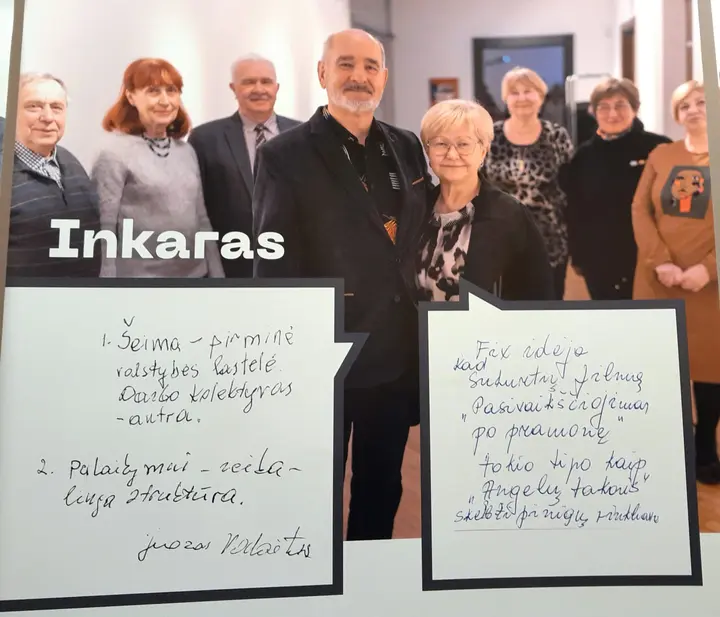 Inkaras
1. Šeima - pirminė
valstybės ląstelė.
Darbo kolektyvas
- antra.
2. Palaikymui - reika-
linga struktūra.
Juozas
Fix idėja
kad
sukurtų filmą
„Pasivaikščiojimai
po pramonę"
tokio tipo kaip
„Angelų takais"
skelbti pinigų rinkliavą